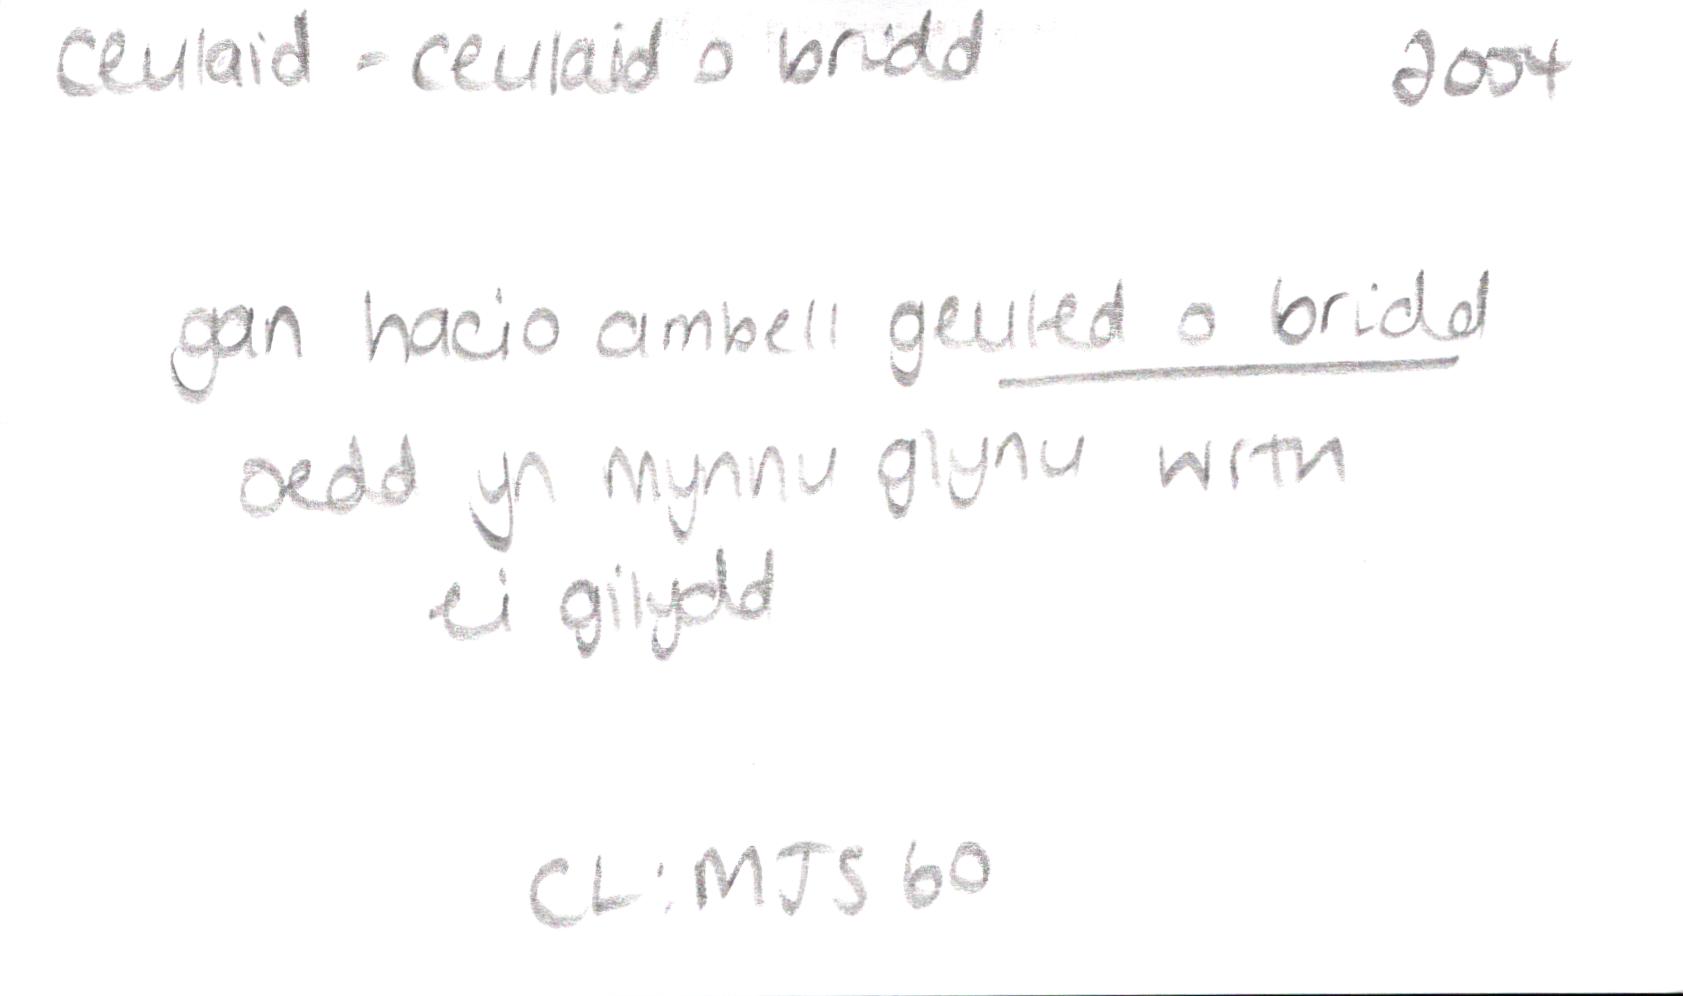 ceulaid - ceulaid o bridd 2004
gan hacio ambell geuled o bridd
oedd yn mynnu glynu wrth
ei gilydd
CL:MJS 60